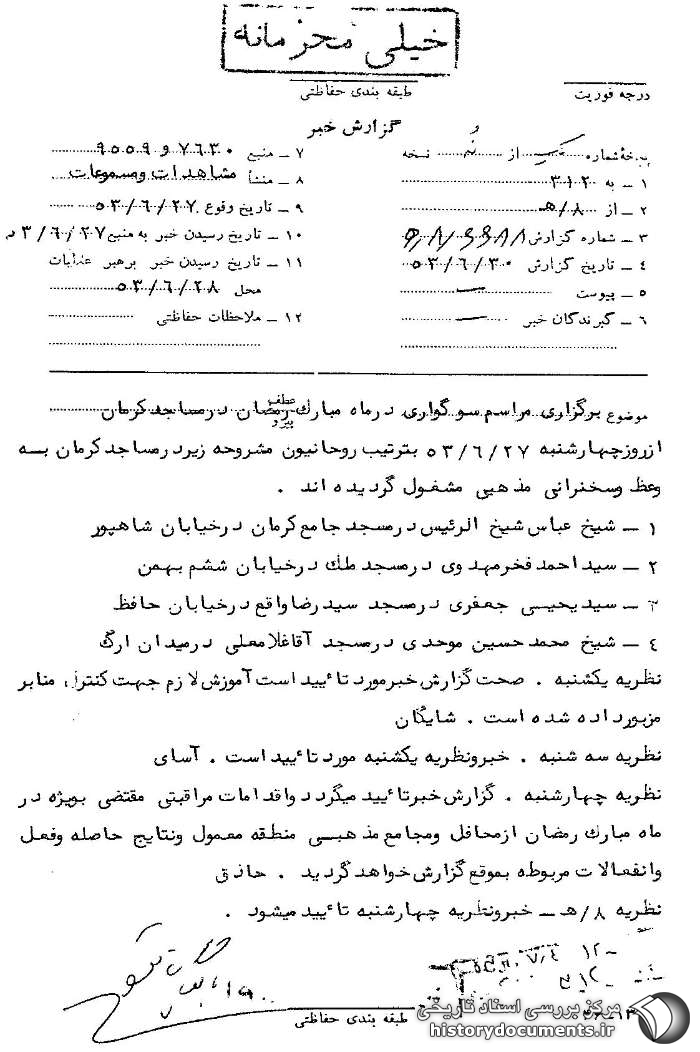 خیلی محرمانه
طبقه بندی حفاظتی
درجه فوریت
گزارش خبر
نسخه شماره یک از نسخه
۱ ـ به ۳۱۲
۲ ـ از ۸/هـ
۳ ـ شماره گزارش
۴ ـ تاریخ گزارش ۵۳/۶/۳۰
۵ ـ پیوست
۶ ـ گیرندگان خبر
۷ ـ منبع ۷۶۳۰ و ۹۵۵۹
۸ ـ منشأ مشاهدات ومسموعات
۹ ـ تاریخ وقوع ۵۳/۶/۲۷
۱۰ ـ تاریخ رسیدن خبر به منبع ۵۳/۶/۲۷
۱۱ ـ تاریخ رسیدن خبر برهبر عملیات
محل ۵۳/۶/۲۸
۱۲ ـ ملاحظات حفاظتی
موضوع برگزاری مراسم سوگواری درماه مبارک رمضان درمساجدکرمان
عطف
پیرو
ازروزچهارشنبه ۵۳/۶/۲۷ بترتیب روحانیون مشروحه زیردرمساجدکرمان بسه
وعظ وسخنرانی مذهبی مشغول گردیده اند .
۱ ـ شیخ عباس شیخ الرئیس درمسجد جامع کرمان درخیابان شاهپور
۲ ـ سیداحمدفخرمهدوی درمسجد ملک درخیابان ششم بهمن
۳ ـ سیدیحیسی جعفری درمسجد سیدرضاواقع درخیابان حافظ
۴ ـ شیخ محمدحسین موحدی درمسجد آقاغلامعلی درمیدان ارگ
نظریه یکشنبه . صحت گزارش خبرمورد تائیید است آموزش لازم جهت کنترل منابر
مزبورداده شده است . شایگان
نظریه سه شنبه . خبرونظریه یکشنبه مورد تائیید است . آسای
نظریه چهارشنبه . گزارش خبرتائیید میگردد واقدامات مراقبتی مقتضی بویژه در
ماه مبارک رمضان ازمحافل ومجامع مذهبسی منطقه معمول ونتایج حاصله وفعل
وانفعالات مربوطه بموقع گزارش خواهدگردید . حاذق
نظریه ۸/هـ ـ خبرونظریه چهارشنبه تائیید میشود .
طبقه بندی حفاظتی
مرکز بررسی اسناد تاریخی
historydocuments.ir